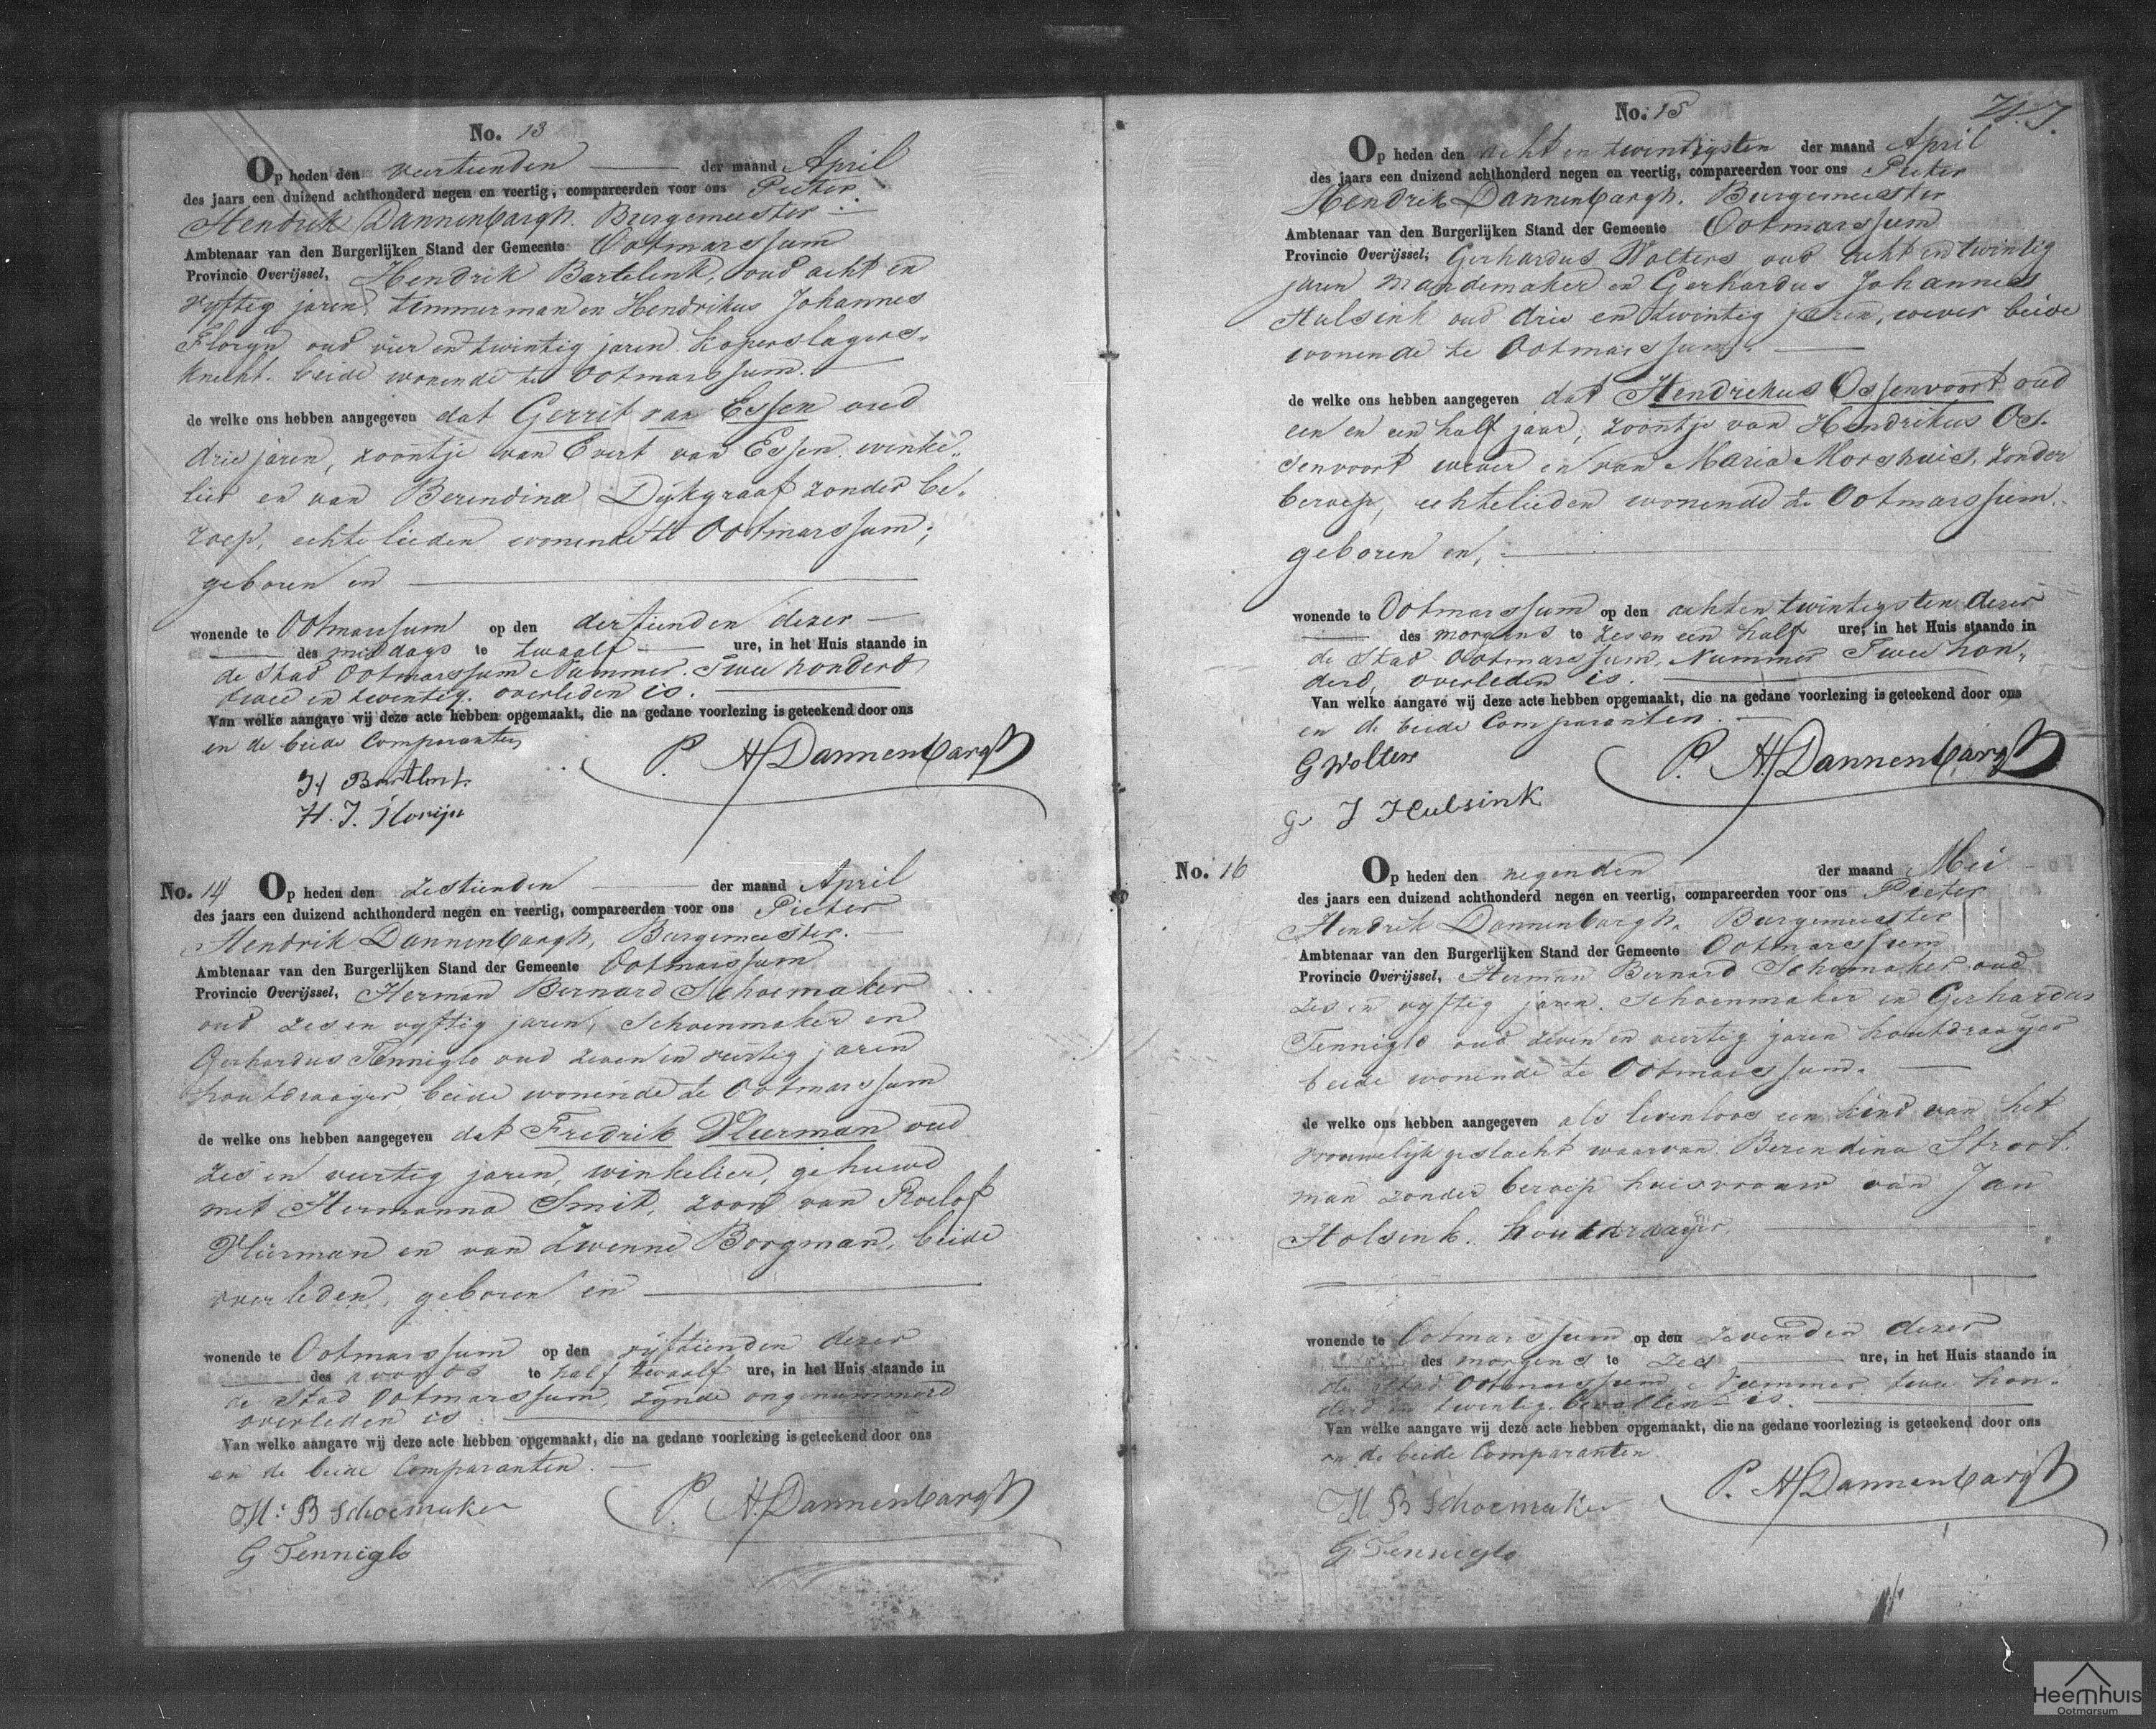 No. 13
Op heden den veertienden der maand April
des jaars een duizend achthonderd negen en veertig, compareerden voor ons Pieter
Hendrik Dannenbargh. Burgemeester
Ambtenaar van den Burgerlijken Stand der Gemeente Ootmarssum
Provincie Overijssel, Hendrik Bartelink, oud acht en
vyftig jaren, timmerman en Hendrikus Johannes
Floryn oud vier en twintig jaren. koperslagers-
knecht. beide wonende te Ootmarssum.
de welke ons hebben aangegeven dat Gerrit van Essen oud
drie jaren, zoontje van Evert van Essen. winke-
lier en van Berendina Dykgraaf zonder be-
roep, echtelieden wonende te Ootmarssum;
geboren en
wonende te Ootmarssum op den dertienden dezer
des middags te twaalf ure, in het Huis staande in
de Stad Ootmarssum Nummer Twee honderd
twee en twintig. overleden is.
Van welke aangave wij deze acte hebben opgemaakt, die na gedane voorlezing is geteekend door ons
en de beide Comparanten
P. H. Dannenbargh
H. J. Florijn
No. 14 Op heden den zestienden der maand April
des jaars een duizend achthonderd negen en veertig, compareerden voor ons Pieter
Hendrik Dannenbargh, Burgemeester.
Ambtenaar van den Burgerlijken Stand der Gemeente Ootmarssum
Provincie Overijssel, Herman Bernard Schoemaker
oud zes en vyftig jaren, Schoenmaker en
Gerhardus Tenniglo oud zeven en veertig jaren
houtdraayer, beide wonende te Ootmarssum
de welke ons hebben aangegeven dat Fredrik Vlierman oud
zes en veertig jaren, winkelier, gehuwd
met Hermanna Smit, zoon van Roelof
Vlierman en van Zwenne Borgman, beide
overleden, geboren en
wonende te Ootmarssum op den vyftienden dezer
des avonds te half twaalf ure, in het Huis staande in
de Stad Ootmarssum, zynde ongenummerd
overleden is
Van welke aangave wij deze acte hebben opgemaakt, die na gedane voorlezing is geteekend door ons
en de beide Comparanten.
P. H. Dannenbargh
H. B Schoemaker
G Tenniglo
No. 15
Op heden den acht en twintigsten der maand April
des jaars een duizend achthonderd negen en veertig, compareerden voor ons Pieter
Hendrik Dannenbargh. Burgemeester
Ambtenaar van den Burgerlijken Stand der Gemeente Ootmarssum
Provincie Overijssel, Gerhardus Wolters oud acht en twintig
jaren mandemaker en Gerhardus Johannes
Hulsink oud drie en twintig jaren, wever beide
wonende te Ootmarssum.
de welke ons hebben aangegeven dat Hendrikus Ossenvoort oud
een en een half jaar, zoontje van Hendrikus Os-
senvoort wever en van Maria Morshuis, zonder
beroep, echtelieden wonende te Ootmarssum.
geboren en,
wonende te Ootmarssum op den achtentwintigsten dezer
des morgens te zes en een half ure, in het Huis staande in
de Stad Ootmarssum, Nummer Twee hon-
derd, overleden is.
Van welke aangave wij deze acte hebben opgemaakt, die na gedane voorlezing is geteekend door ons
en de beide Comparanten.
G Wolters
P. H. Dannenbargh
G J Hulsink
No. 16 Op heden den negenden der maand Mei
des jaars een duizend achthonderd negen en veertig, compareerden voor ons Pieter
Hendrik Dannenbargh. Burgemeester
Ambtenaar van den Burgerlijken Stand der Gemeente Ootmarssum
Provincie Overijssel, Herman Bernard Schoemaker oud
zes en vyftig jaren. Schoenmaker en Gerhardus
Tenniglo oud zeven en veertig jaren houtdraayer
beide wonende te Ootmarssum.
de welke ons hebben aangegeven als levenloos een kind van het
vrouwelijk geslacht waarvan Berendina Stroot-
man zonder beroep huisvrouw van Jan
Holsink. houtdraayer.
wonende te Ootmarssum op den zevenden dezer
des morgens te zes ure, in het Huis staande in
de Stad Ootmarssum Nummer twee hon-
derd en twintig. bevallen is.
Van welke aangave wij deze acte hebben opgemaakt, die na gedane voorlezing is geteekend door ons
en de beide Comparanten.
P. H. Dannenbargh
H B Schoemaker
G Tenniglo
Heemhuis
Ootmarsum